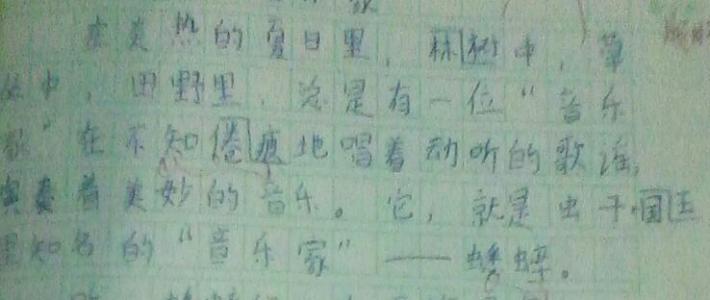 在炎热的夏日里，林树中，草
丛中，田野里，总是有一位“音乐
家”在不知倦疲地唱着动听的歌谣，
演奏着美妙的音乐。它，就是虫子国王
里知名的“音乐家”——蟋蟀。